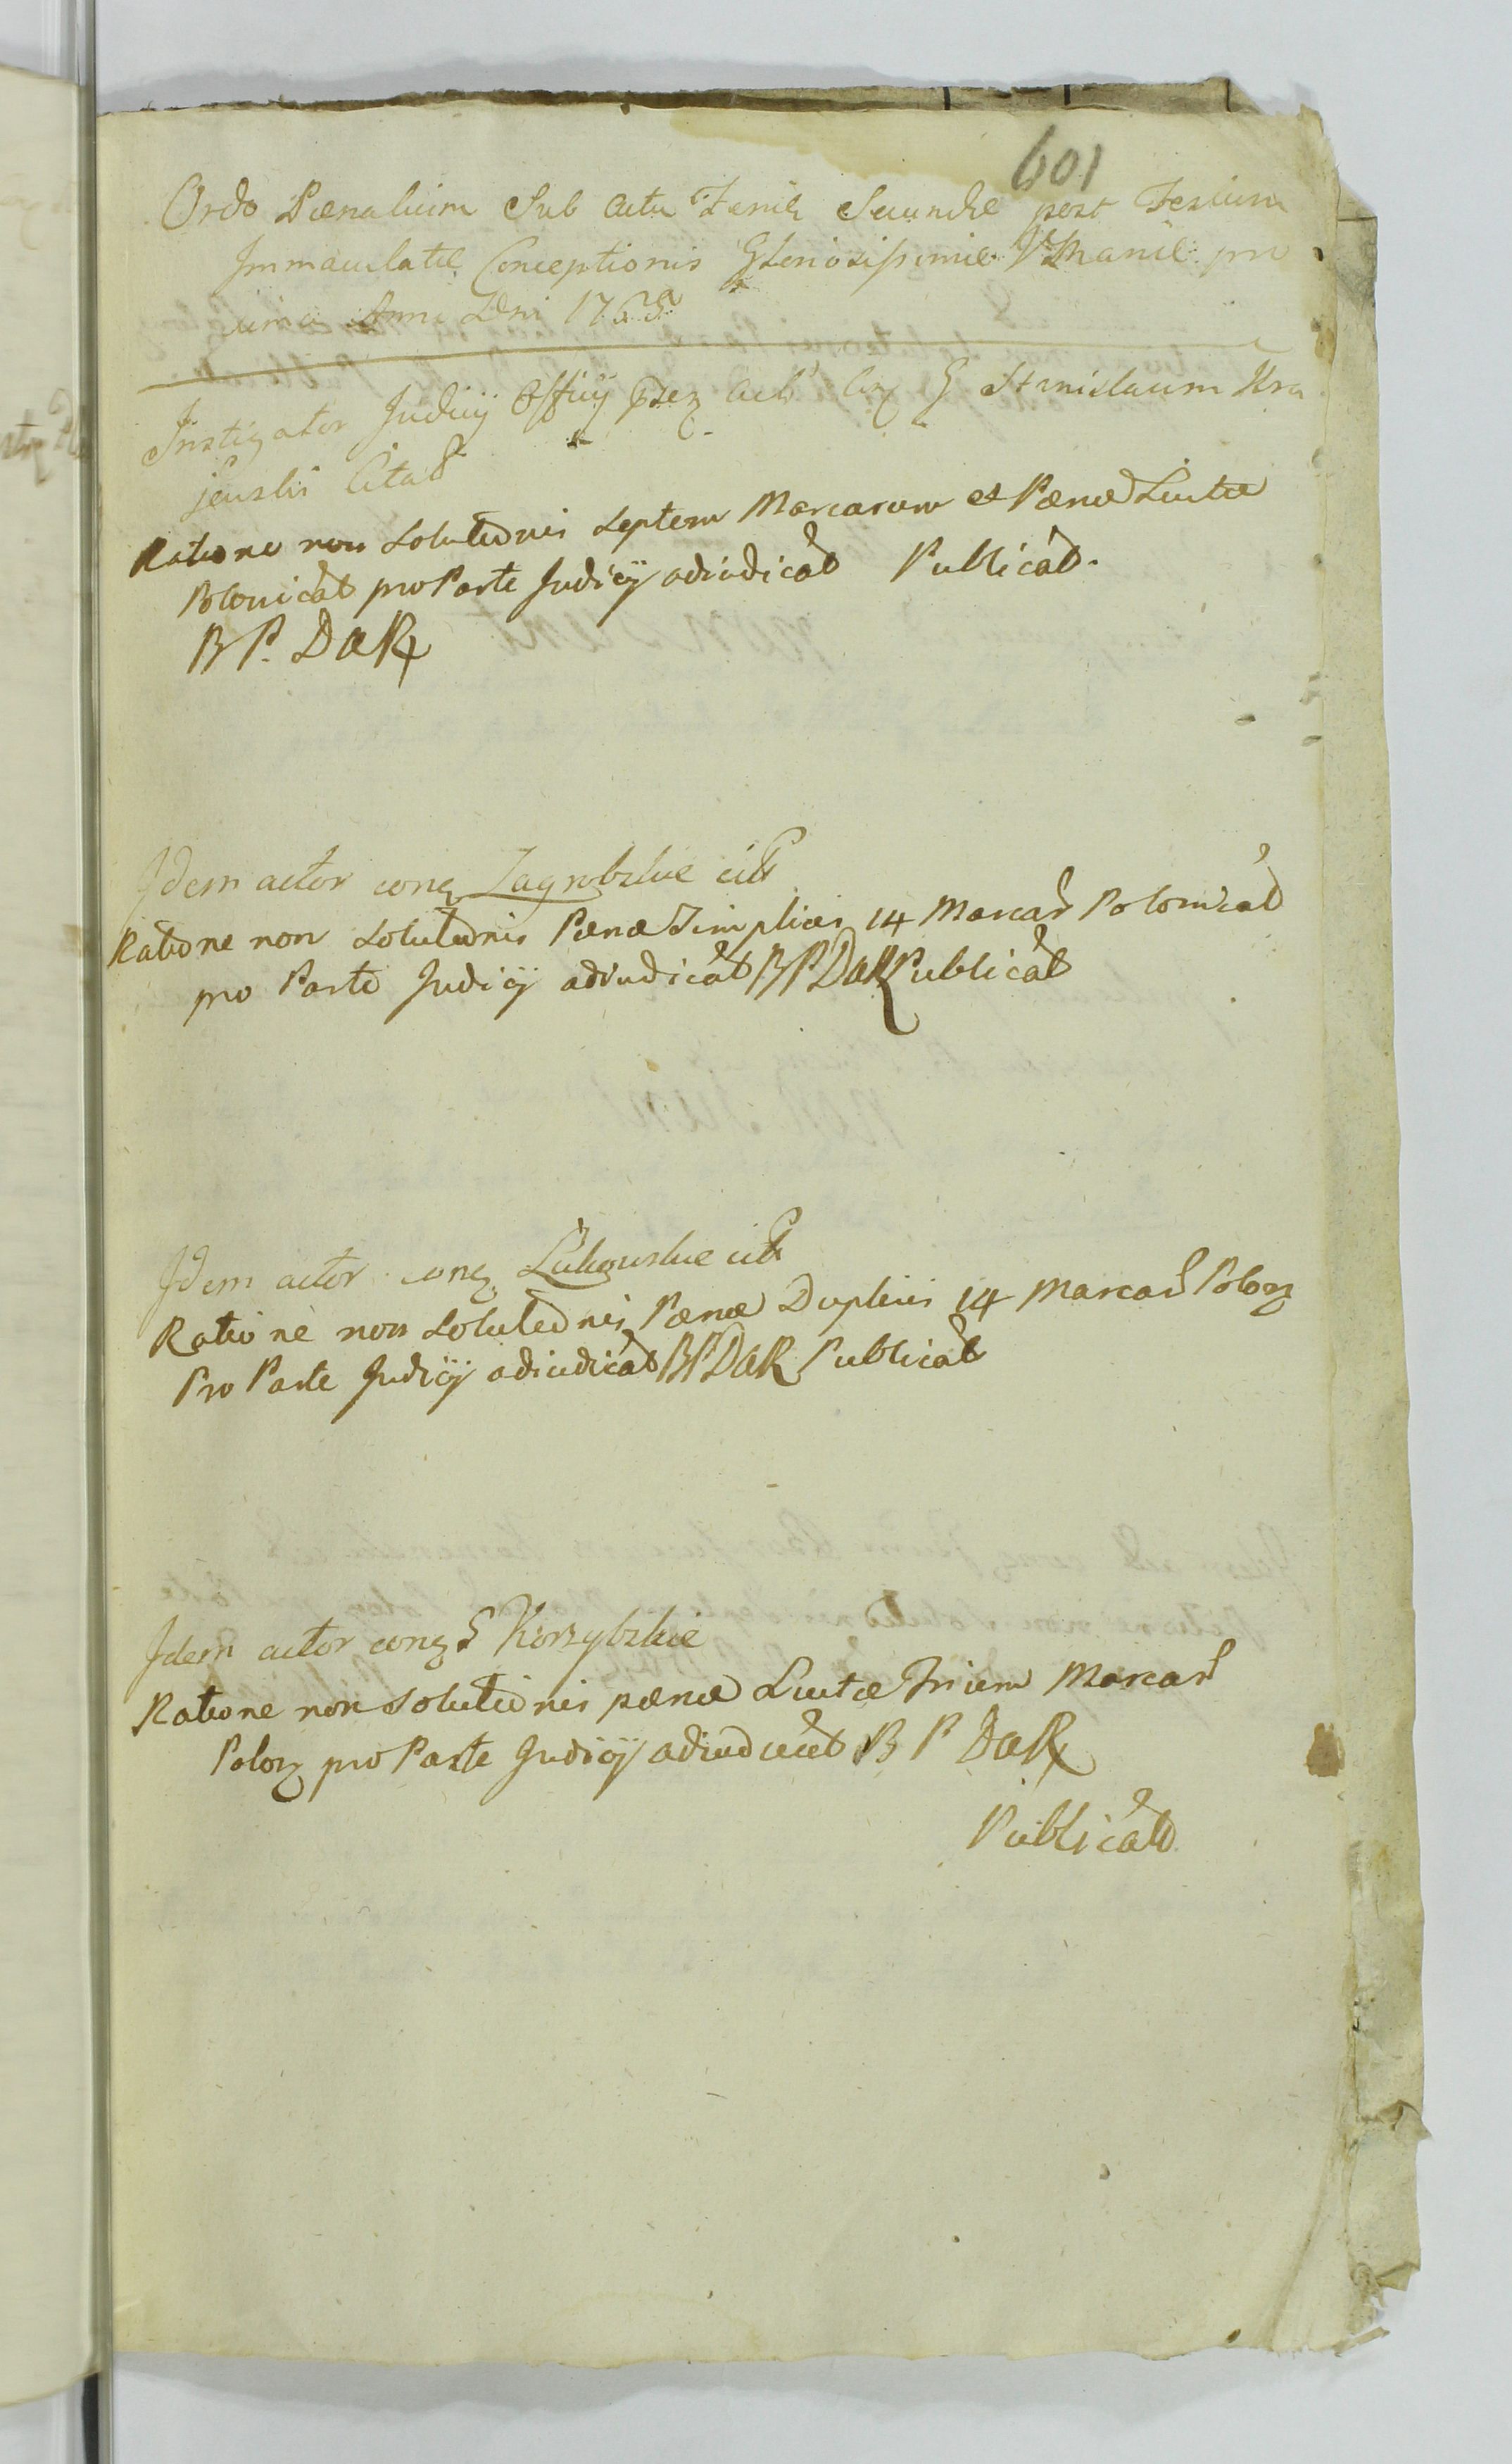 601
Ordo Pænalium Sub actu Feriæ Secundæ post Festum
Immaculatæ Conceptionis Gloriosissimæ V Mariæ pro
xima Anno Dni 176
Instigator Judicij Officij act G Stanislaum Kra
jewski Citat
Ratione non Solutionis Septem Marcarum et Pænæ Luitæ
Polonicał pro Parte Judicij adiudicat Publicat.
BP. DaR
Idem actor conq Zagrobskie cit
Ratione non Solutionis Pænæ Simplicis 14 Marcar Polonical
pro Parte Judicij adiudicat BPDaR Publicat
Idem actor conq Łukowskie cit
Ratione non Solutionis Pænæ Duplicis 14 Marcar Polon
Pro Parte Judicij adiudicat BPDaR Publicat
Idem actor conq G Korzybskie
Ratione non Solutionis pænæ Luitæ Trium Marcar
Polon pro Parte Judicij adiudicat B P DaR
Publicat